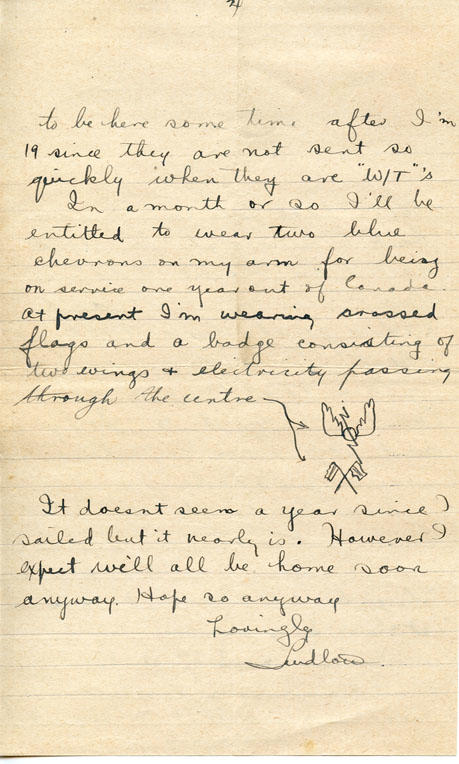 to be here some time after I'm
19 since they are not sent so
quickly when they are "W/T"'s
In a month or so I'll be
entitled to wear two blue
chevrons on my arm for being
on service one year out of Canada.
At present I'm wearing crossed
flags and a badge consisting of
two wings + electricity passing
through the centre
It doesnt seem a year since I
sailed but it nearly is. However I
expect we'll all be home soon
anyway. Hope so anyway
Lovingly
Ludlow.